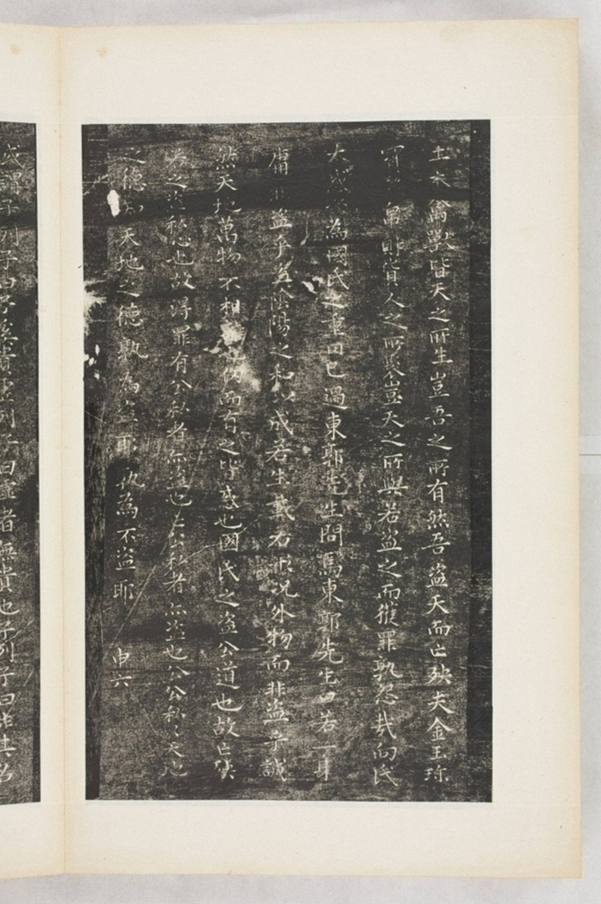 土木禽獸皆天之所生豈吾之所有然吾盜天而亡殃夫金玉珍
帛財貨人之所聚豈天之所與若盜之而獲罪孰怨哉向氏
大惑為國氏之重罔已過東郭先生問焉東郭先生曰若一身
庸非盜乎盜陰陽之和以成若生載若形況外物而非盜乎誠
然天地萬物不相仞而有之皆惑也國氏之盜公道也故亡殃
若之盜私心也故得罪有公私者亦盜也亡公私者亦盜也公公私々天地
之德知天地之德孰為盜耶孰為不盜耶 申六
或謂子列子曰子奚貴虛列子曰虛者無貴也子列子曰非其名